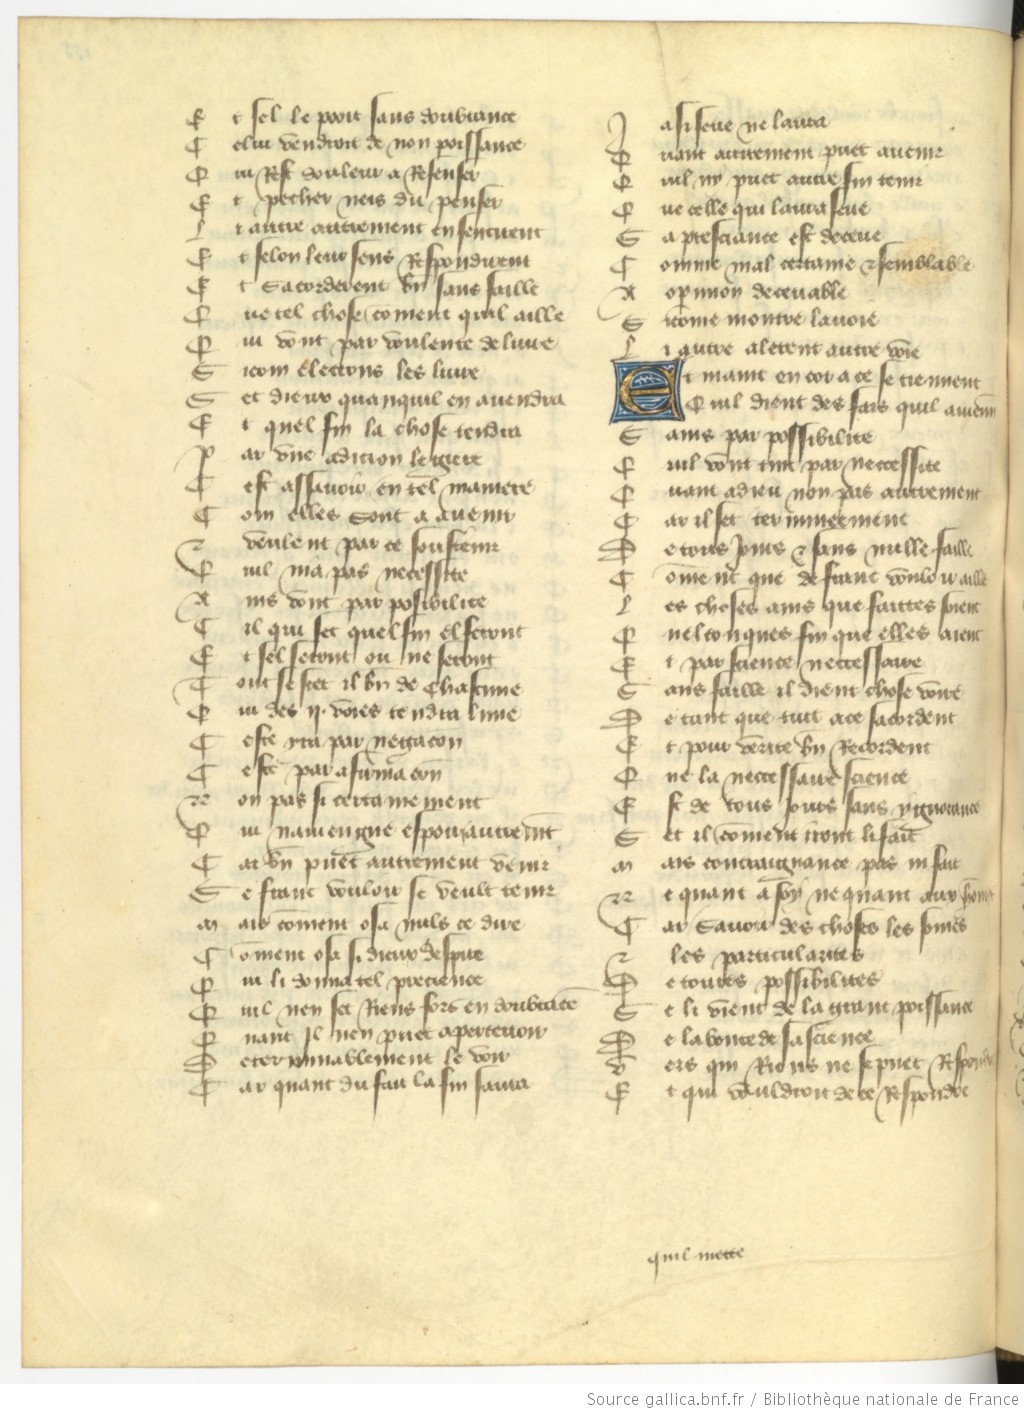 Et sel le povit sans doubtance
Celui vendroit de non poissance
Qui Rest douleur a Resenser
Et pecher neis du penser
Li autre autrement en sentirent
Et selon leur sens Respondirent
Et Sacorderent bn sans faille
Que tel chose coment quil aille
Qui vont par voulente delivre
Sicom elections les livre
Set dieux quanquil en avendra
Et quel fin la chose tendra
Par vne adicion legiere
Cest assavoir en tel maniere
Com elles Sont a avenir
2 veulent par ce soustenir
Quil nia pas necessite
Ains vont par posibilite
Cil qui set quel fin el feront
Et sel seront ou ne seront
Tout se scet il bn de Chascune
Qui des .ij. voies tendra lune
Ceste yra par negacon
Ceste par afirmacon
Non pas si certainement
Qui naviengne espoir autremnt
Car bn puet autrement venir
Se franc vouloir se veult tenir
Mais coment osa nuls ce dire
Coment osa si dieux despire
Qui li donna tel precience
Quil nen set Riens fors en doubtace
Quant Il nen puet apercevoir
Determinablement le voir
Car quant du fait la fin saura
Ja si seue ne laura
Quant autrement puet avenir
Quil ny puet autre fin tenir
Que celle qui laura seue
Sa presciance est deceue
Comme mal certaine 2 semblable
A opinion decevable
Sicome montre lavoie
Li autre aletent autre voie
Et maint encor a ce se tiennent
Quil dient des fais quil avienn
Sains par possibilite
Quil vont tuit par neccessite
Quant a dieu non pas autrement
Car il set termineement
De tous Jours 2 sans nulle faille
Coment que de franc vouloir aille
Les choses ains que faittes soient
Quelconques fin que elles aient
Et par science neccessaire
Sans faille il dient chose voire
De tant que tuit a ce sacordent
Et pour verite bn Recordent
Que la neccessaire science
Est de tous jours sans ygnorance
Set il coment iront li fait
Mais contraignance pas ni fait
Ne quant a soy ne quant aux home
Car Savoir des choses les somes
2 les particularites
De toutes possibilites
Se li vient de la grant poissance
De la bonte de sa science
Vers qui Riens ne se puet Respondre
Et qui vouldroit de ce Respondre
quil mette
Source gallica.bnf.fr / Bibliothèque nationale de France